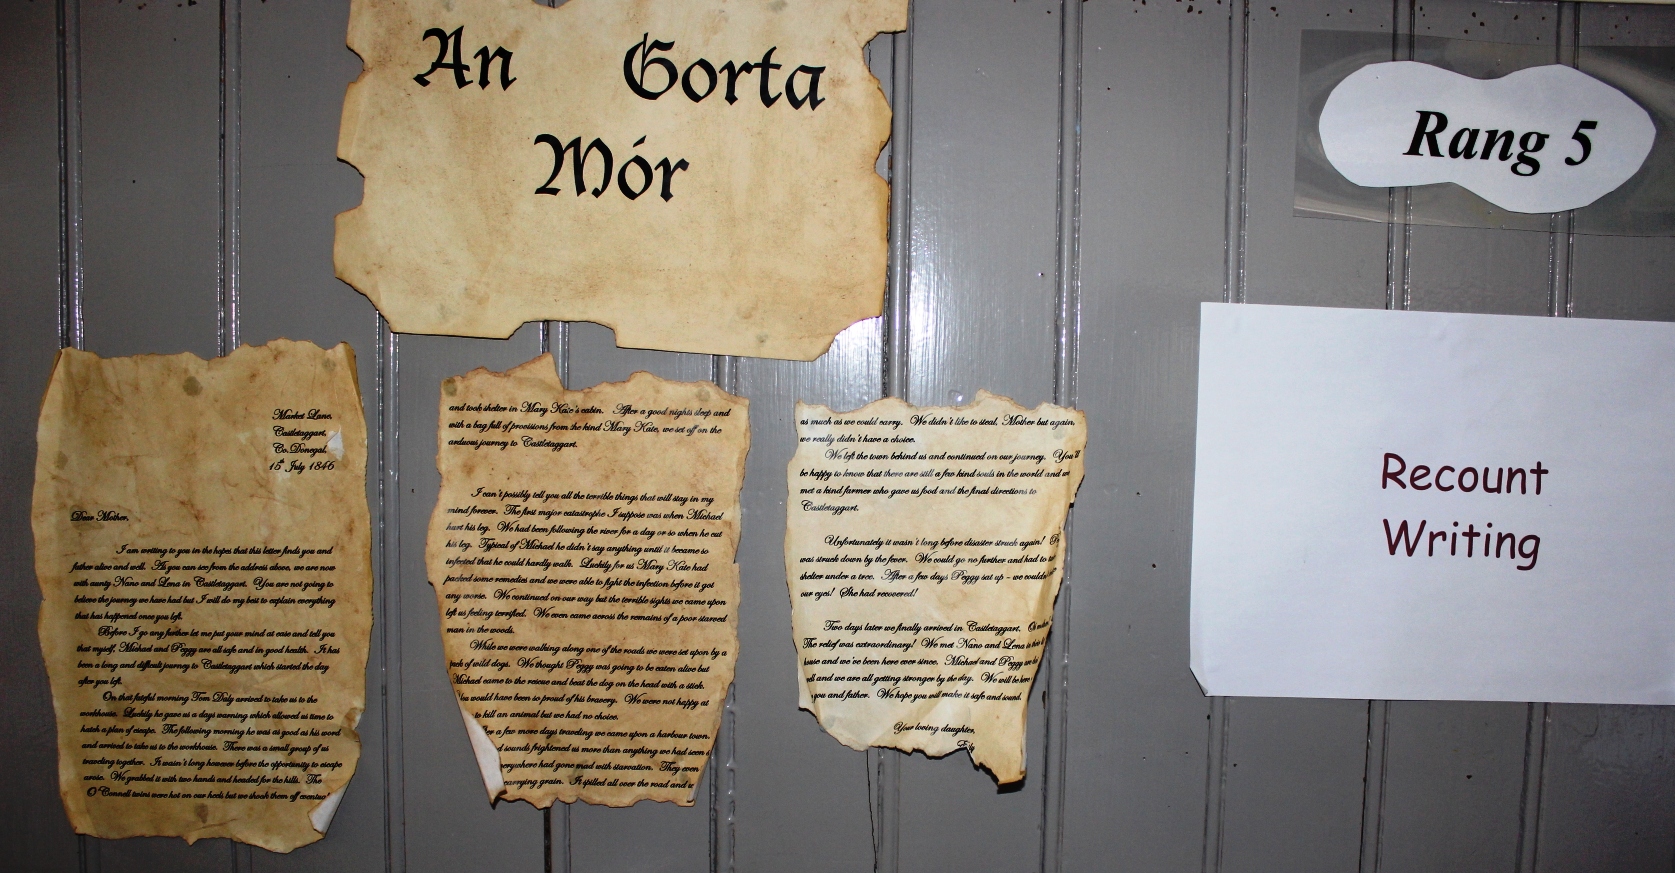 An Gorta
Mór
Rang 5
Recount
Writing
Market Lane,
Castletaggart,
Co.Donegal,
15th July 1846
Dear Mother,
I am writing to you in the hopes that this letter finds you and
father alive and well. As you can see from the address above, we are now
with aunty Nano and Lena in Castletaggart. You are not going to
believe the journey we have had but I will do my best to explain everything
that has happened once you left.
Before I go any further let me put your mind at ease and tell you
that myself, Michael and Peggy are all safe and in good health. It has
been a long and difficult journey to Castletaggart which started the day
after you left.
On that fateful morning Tom Daly arrived to take us to the
workhouse. Luckily he gave us a days warning which allowed us time to
hatch a plan of escape. The following morning he was as good as his word
and arrived to take us to the workhouse. There was a small group of us
traveling together. It wasn't long however before the opportunity to escape
arose. We grabbed it with two hands and headed for the hills. The
O'Connell twins were hot on our heels but we shook them off
and took shelter in Mary Kate's cabin. After a good nights sleep and
with a bag full of provisions from the kind Mary Kate, we set off on the
arduous journey to Castletaggart.
I can't possibly tell you all the terrible things that will stay in my
mind forever. The first major catastrophe I suppose was when Michael
hurt his leg. We had been following the river for a day or so when he cut
his leg. Typical of Michael he didn't say anything until it became so
infected that he could hardly walk. Luckily for us Mary Kate had
packed some remedies and we were able to fight the infection before it got
any worse. We continued on our way but the terrible sights we came upon
left us feeling terrified. We even came across the remains of a poor starved
man in the woods.
While we were walking along one of the roads we were set upon by a
pack of wild dogs. We thought Peggy was going to be eaten alive but
Michael came to the rescue and beat the dog on the head with a stick.
You would have been so proud of his bravery. We were not happy at
to kill an animal but we had no choice.
a few more days traveling we came upon a harbour town.
sounds frightened us more than anything we had seen
everywhere had gone mad with starvation. They even
carrying grain. It spilled all over the road and
as much as we could carry. We didn't like to steal, Mother but again,
we really didn't have a choice.
We left the town behind us and continued on our journey. You'll
be happy to know that there are still a few kind souls in the world and we
met a kind farmer who gave us food and the final directions to
Castletaggart.
Unfortunately it wasn't long before disaster struck again!
was struck down by the fever. We could go no further and had to
shelter under a tree. After a few days Peggy sat up - we
our eyes! She had recovered!
Two days later we finally arrived in Castletaggart.
The relief was extraordinary! We met Nano and Lena
house and we've been here ever since. Michael and Peggy
and we are all getting stronger by the day. We will be here
you and father. We hope you will make it safe and sound.
Your loving daughter,